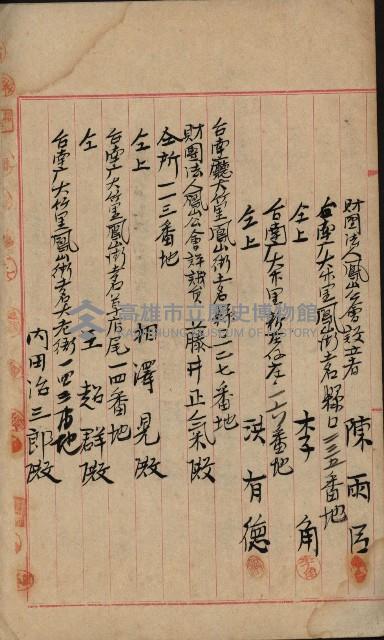 財團法人鳳山公會設立者
陳雨
台南廳大竹里鳳山街土名縣口三三五番地
仝上 李角
台南廳大竹里 一六番地
仝上 洪有德
台南廳大竹里鳳山街土名縣口二二七番地
財團法人鳳山公會評議員 藤井正氣殿
仝所一二三番地
仝上 相澤晃殿
台南廳大竹里鳳山街土名 尾一四番地
仝 王超群殿
台南廳大竹里鳳山街土名大老衙一四三番地
內田治三郎殿
高雄市立歷史博物館
KAOHSIUNG MUSEUM OF HISTORY